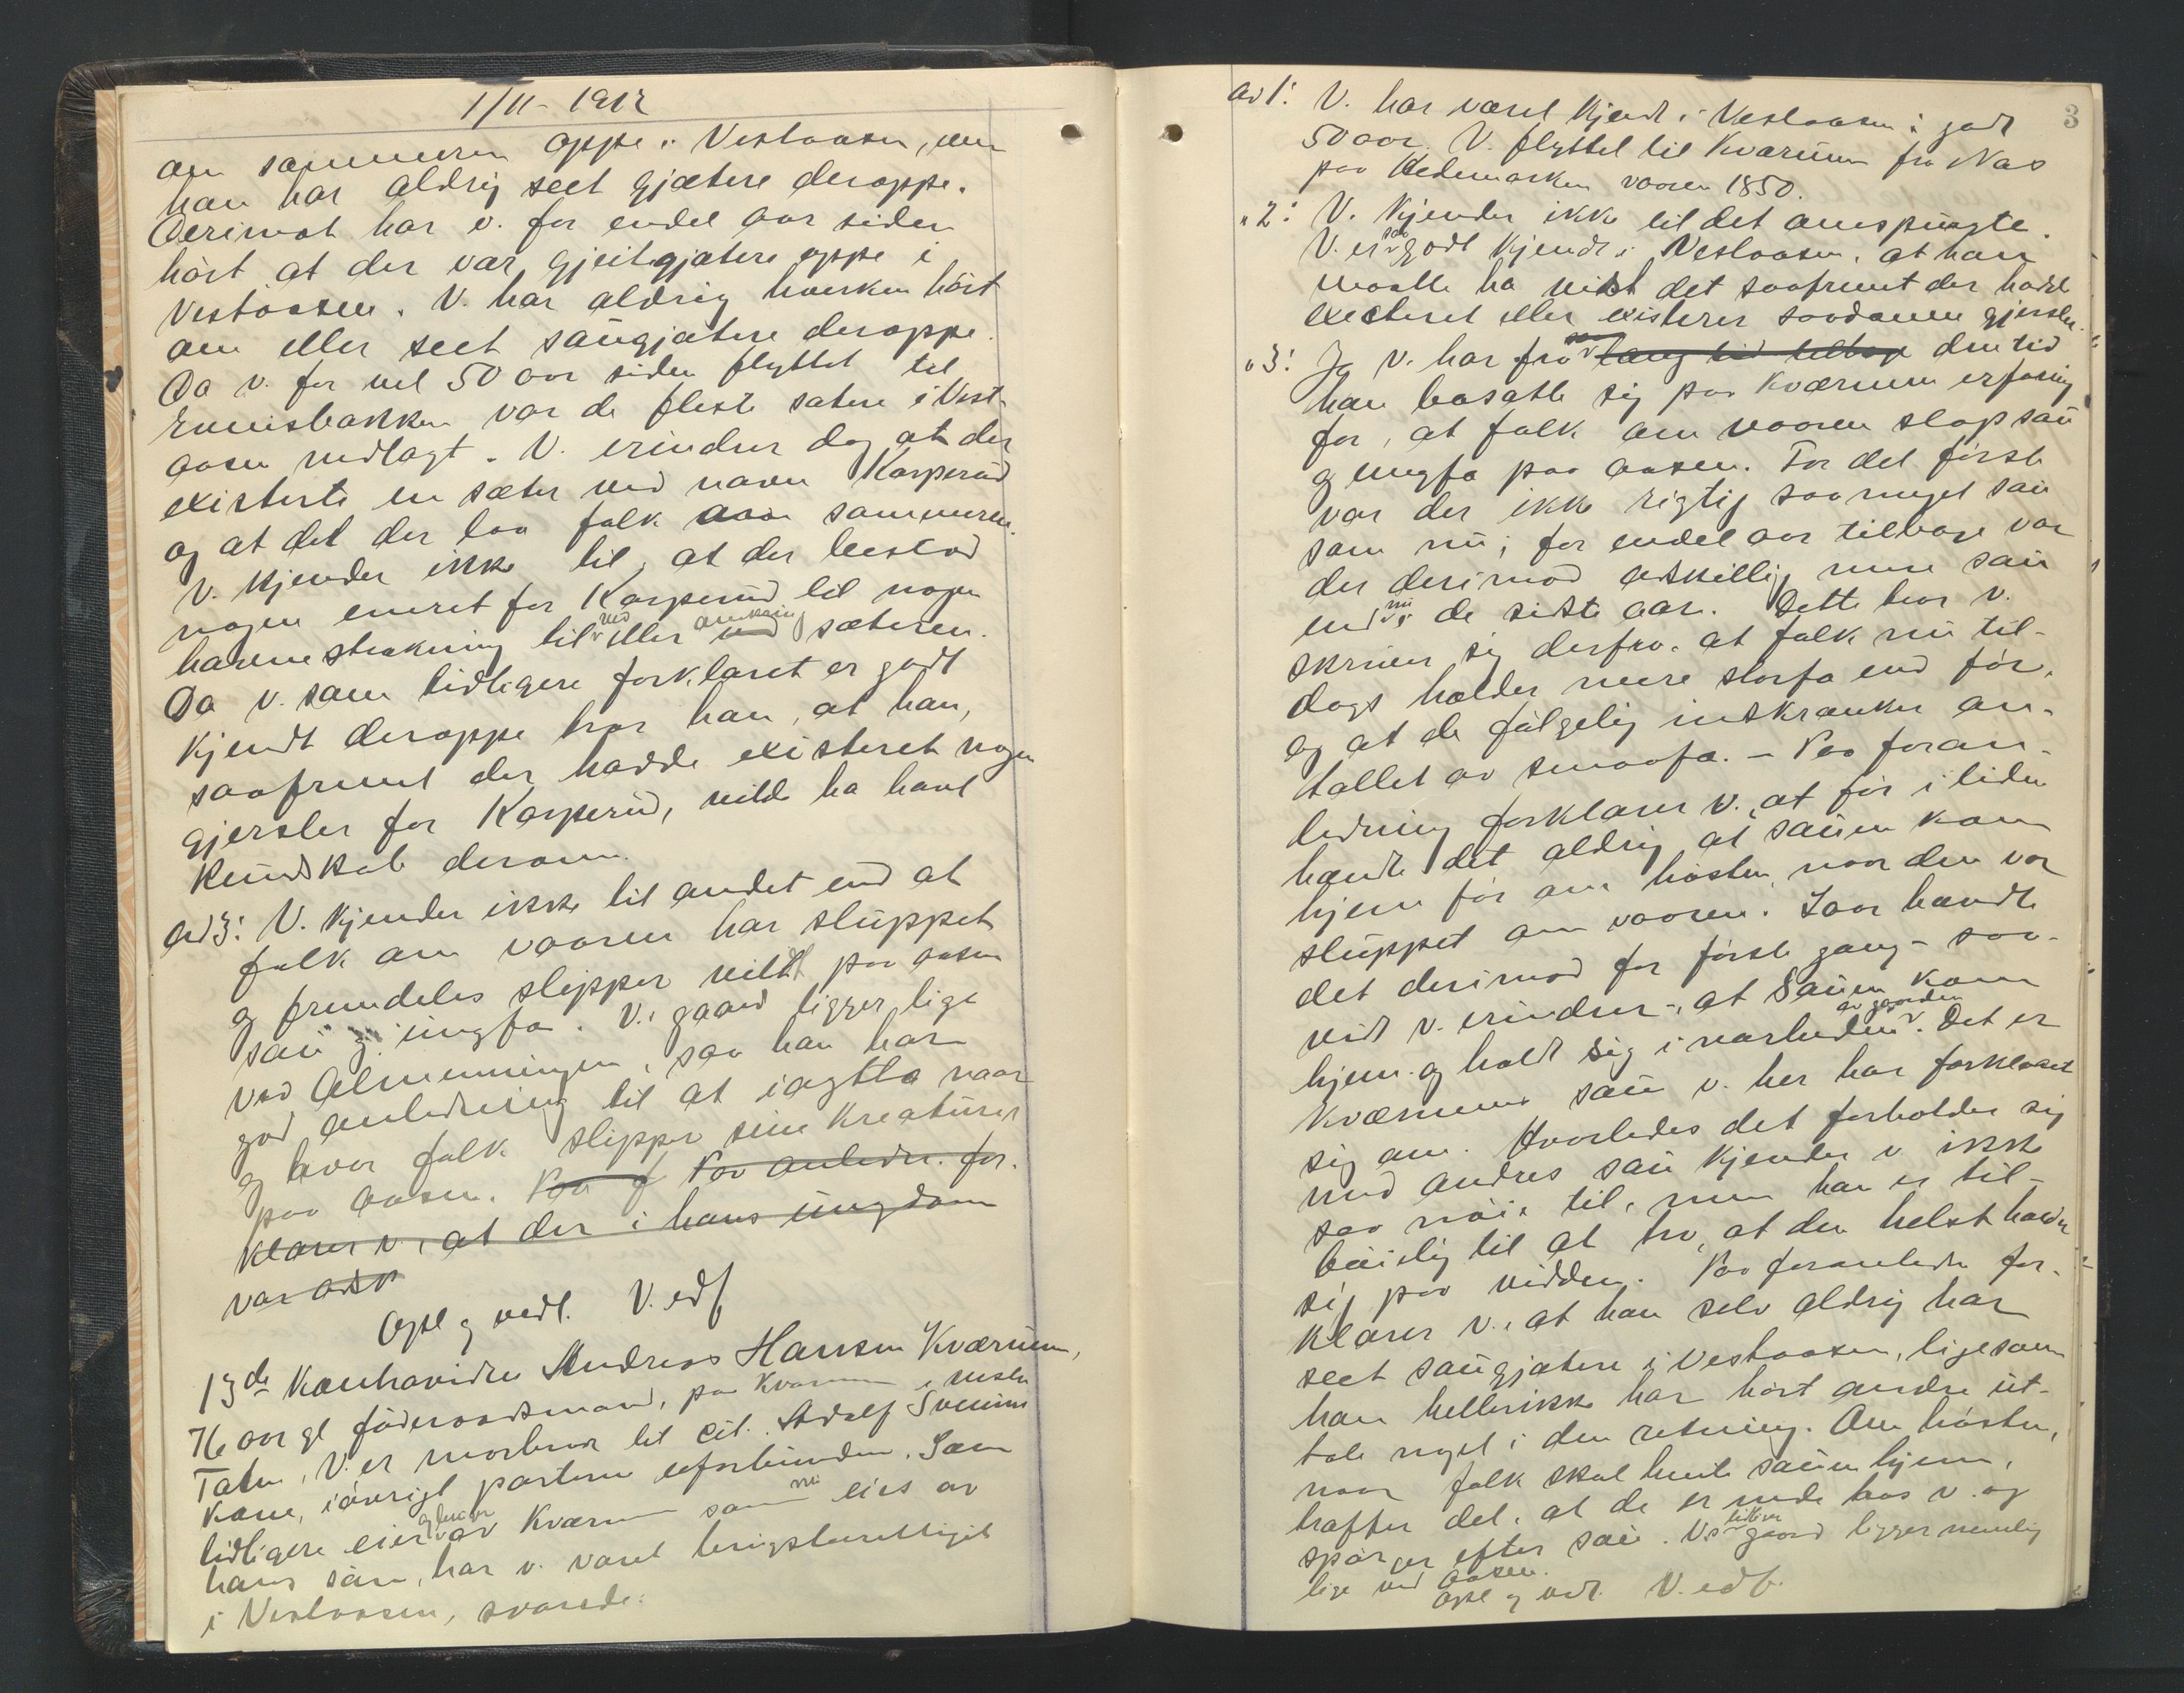 1/11 - 1912
om sommeren oppe i Vestaasen, men
han har aldrig seet gjætere deroppe.
Derimot har v. for endel aar siden
hørt at der var gjeitegjætere oppe i
Vestaasen. V. har aldrig hverken hørt
om eller seet saugjætere deroppe.
Da v. for vel 50 aar siden flyttet til
Ennisbakken var de fleste sætere i Vest-
aasen nedlagt. V. erindrer dog at der
existerte en sæter ved navn Karperud
og at det der laa folk om sommeren.
V. kjender ikke til, at der bestod
nogen eneret for Karperud til nogen
havnestrækning til ved eller omkring sæteren.
Da v. som tidligere forklaret er godt
kjendt deroppe tror han, at han,
saafremt der hadde existeret nogen
gjersler for Karperud, vilde ha havt
kundskab derom.
ad 3: V. kjender ikke til andet end at
folk om vaaren har sluppet
og fremdeles slipper vildt paa aasen
sau og ungfæ. V.s gaard ligger lige
ved Almenningen, saa han har
god anledning til at iagtta naar
og hvor folk slipper sine kreaturer
paa aasen. Paa f Paa anledn. for-
klarer v., at der i hans ungdom
var adsk
Opl og vedt. V. edf
13de Kaarhavidne Andreas Hansen Kværnum,
76 aar gl føderaadsmand, paa Kværnum i vestre
Toten. V. er morbror til cit. Adolf Svennes
kone, iøvrigt partene uforbunden. Som
tidligere eier og bruker av Kværnum som nu eies av
hans søn, har v. været bruksberettiget
i Vestaasen, svarede:
3
ad 1: V. har været kjendt i Vestaasen i godt
50 aar. V. flyttet til Kværnum fra Næs
paa Hedemarken vaaren 1850.
" 2: V. kjender ikke til det omspurgte.
V. er saa godt kjendt i Vestaasen, at han
maatte ha visst det saafremt der hadde
existeret eller existerer saadanne gjersler.
" 3: Ja v. har fra lang tid tilbage den tid
han bosatte sig paa Kværnum erfaring
for, at folk om vaaren slap sau
og ungfæ paa aasen. For det første
var der ikke rigtig saa meget sau
som nu; for endel aar tilbage var
der derimod adskillig mere sau
end nu i de sidste aar. Dette tror v.
skriver sig derfra, at folk nu til-
dags holder mere storfæ end før,
og at de følgelig indskrænker an-
tallet av smaafæ. - Paa foran-
ledning forklarer v., at før i tiden
hændte det aldrig at sauen kom
hjem før om høsten, naar den var
sluppet om vaaren. Iaar hændte
det derimod for første gang - saa-
vidt v. erindrer -, at sauen kom
hjem og holdt sig i nærheden av gaarden. Det er
Kværnums sau v. her har forklaret
sig om. Hvorledes det forholder sig
med andres sau kjender v. ikke
saa nøie til, men han er til-
bøielig til at tro, at den helst holder
sig paa vidden. Paa foranledn for-
klarer v., at han selv aldrig har
seet saugjætere i Vestaasen, ligesom
han hellerikke har hørt andre ut-
tale noget i den retning. Om høsten,
naar folk skal hente sauen hjem,
træffer det, at de er nede hos v. og
spørger efter sau. V.s gaard ligger nemlig
lige ved aasen.
Opl og vedt. V. edf.